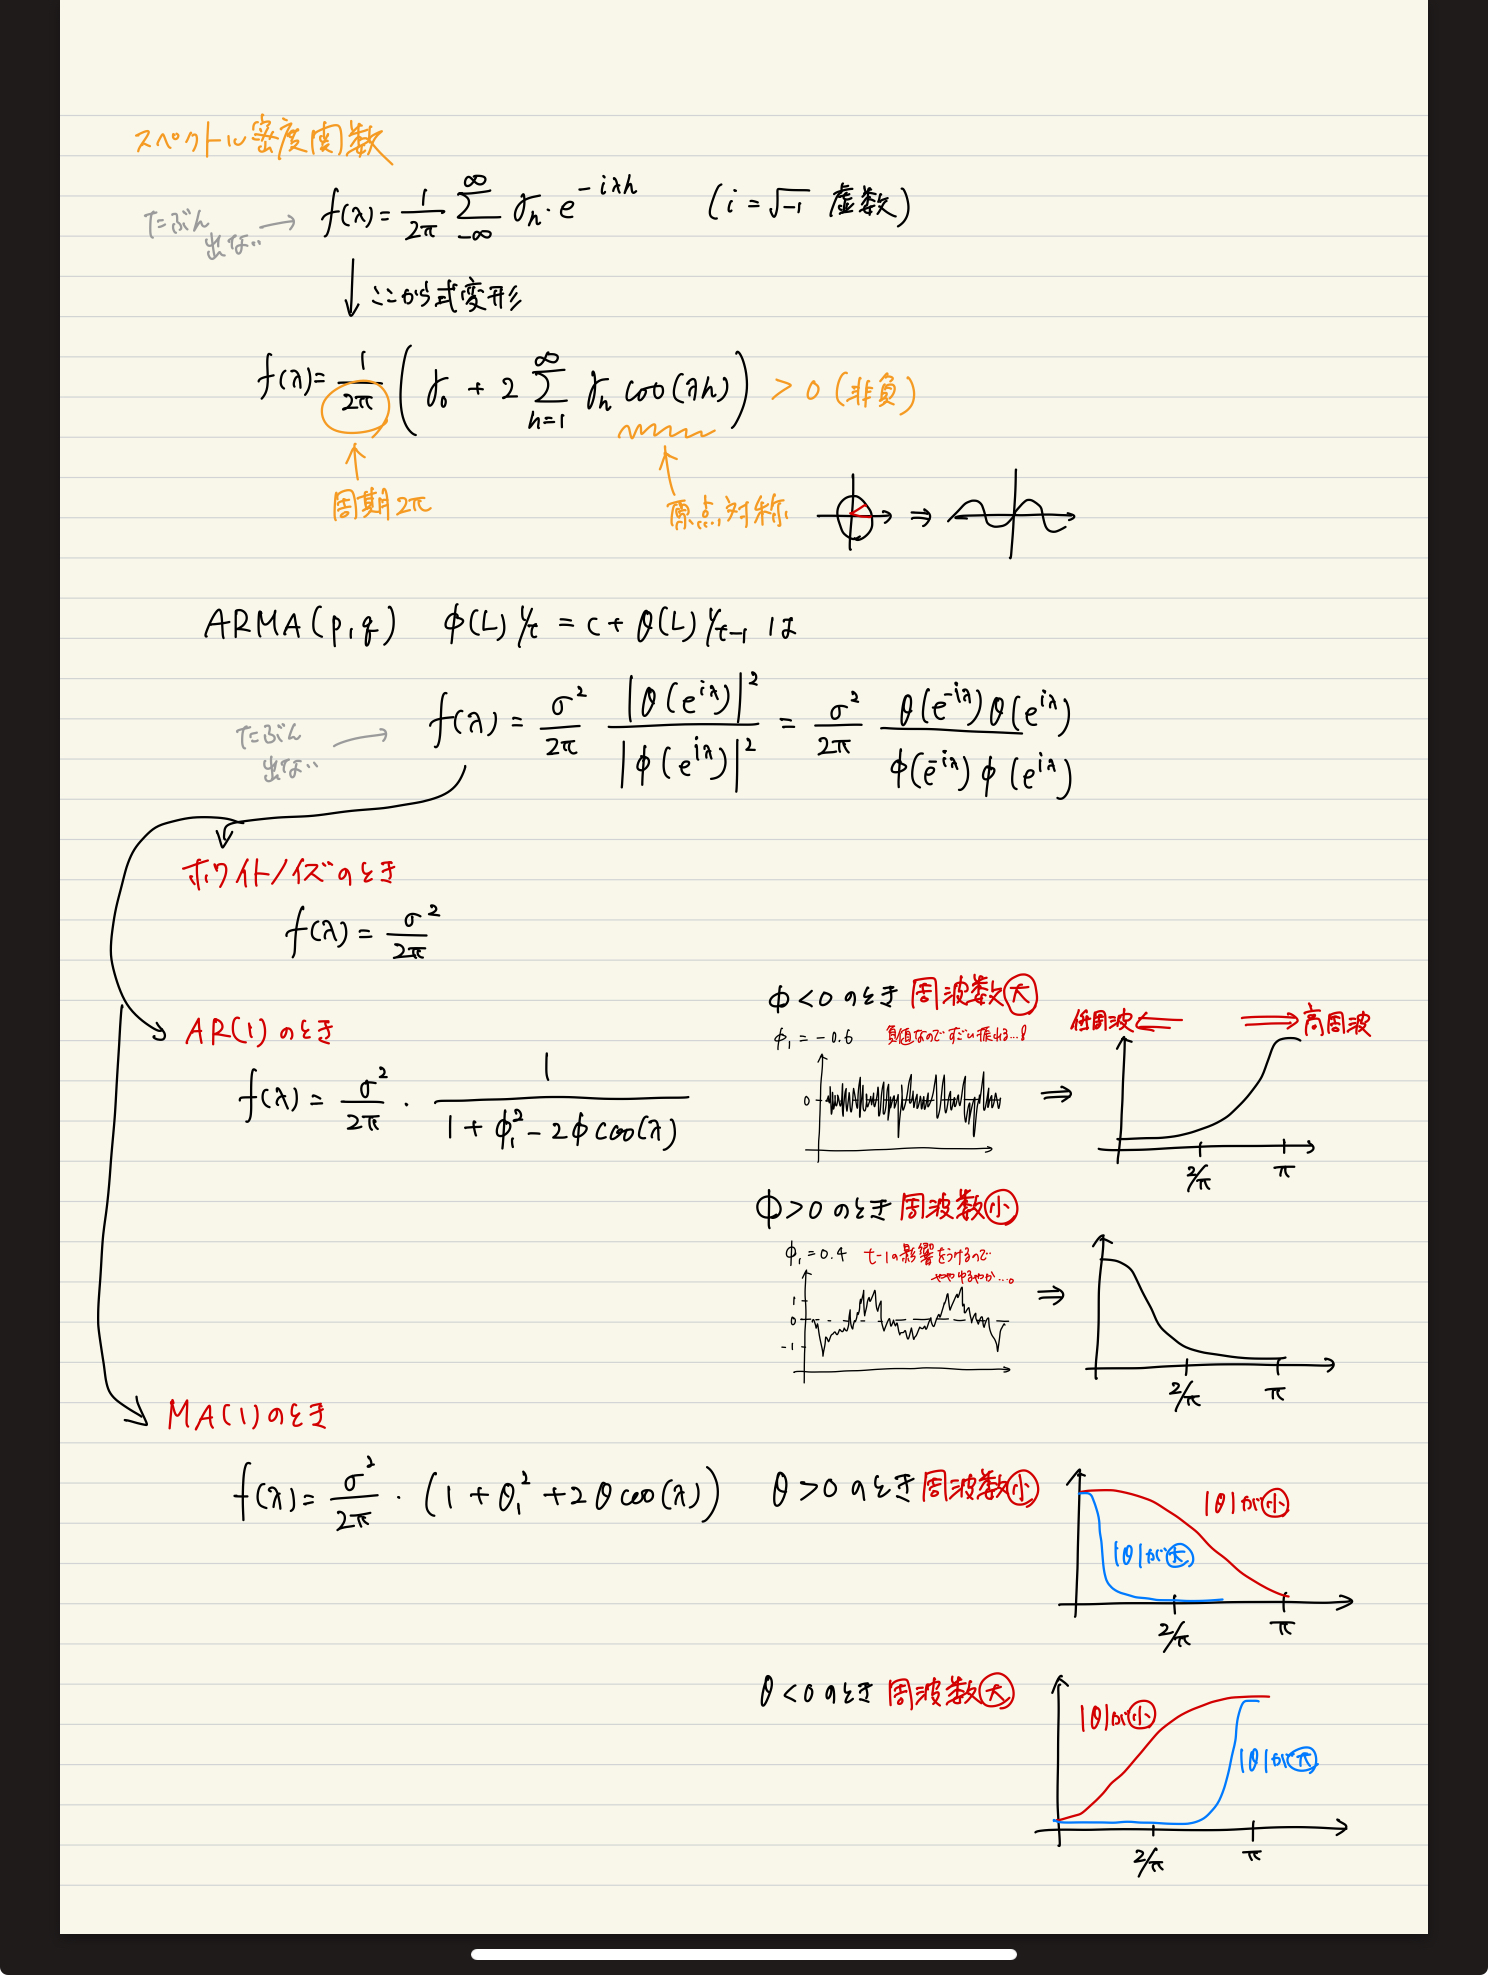 スペクトル密度関数
たぶん出ない → f(λ) = 1/2π Σ_{-∞}^{∞} γ_h・e^{-iλh} (i = √-1 虚数)
↓ ここから式変形
f(λ) = 1/2π (γ_0 + 2 Σ_{h=1}^{∞} γ_h cos(λh)) > 0 (非負)
周期2π
原点対称
ARMA(p,q) φ(L)y_t = c + θ(L)y_{t-1} は
たぶん出ない → f(λ) = σ²/2π |θ(e^{iλ})|²/|φ(e^{iλ})|² = σ²/2π θ(e^{-iλ})θ(e^{iλ})/φ(e^{-iλ})φ(e^{iλ})
ホワイトノイズのとき
f(λ) = σ²/2π
AR(1)のとき
f(λ) = σ²/2π・1/(1 + φ_1² - 2φcos(λ))
φ<0のとき 周波数大
φ_1 = -0.6 負値なのですごい振れる…!
0
低周波 ⇐ ⇒ 高周波
2/π π
φ>0のとき 周波数小
φ_1 = 0.4 t-1の影響をうけるので
ややゆるやか…。
1
0
-1
2/π π
MA(1)のとき
f(λ) = σ²/2π・(1 + θ_1² + 2θcos(λ))
θ>0のとき 周波数小
|θ|が小
|θ|が大
2/π π
θ<0のとき 周波数大
|θ|が小
|θ|が大
2/π π